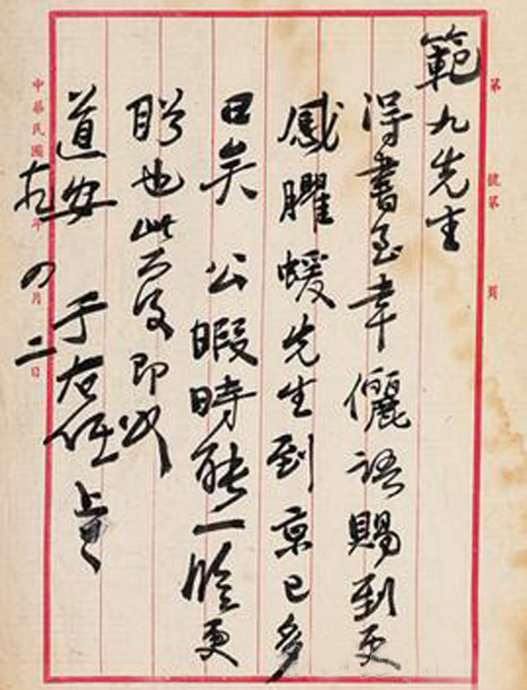 第 號第 頁
範九先生
得書至幸儷語賜到更
感臞蝯先生到京已多
日矣 公暇時能一臨更
盼也此復即頌
道安 于右任 上
中華民國 年 四月二日